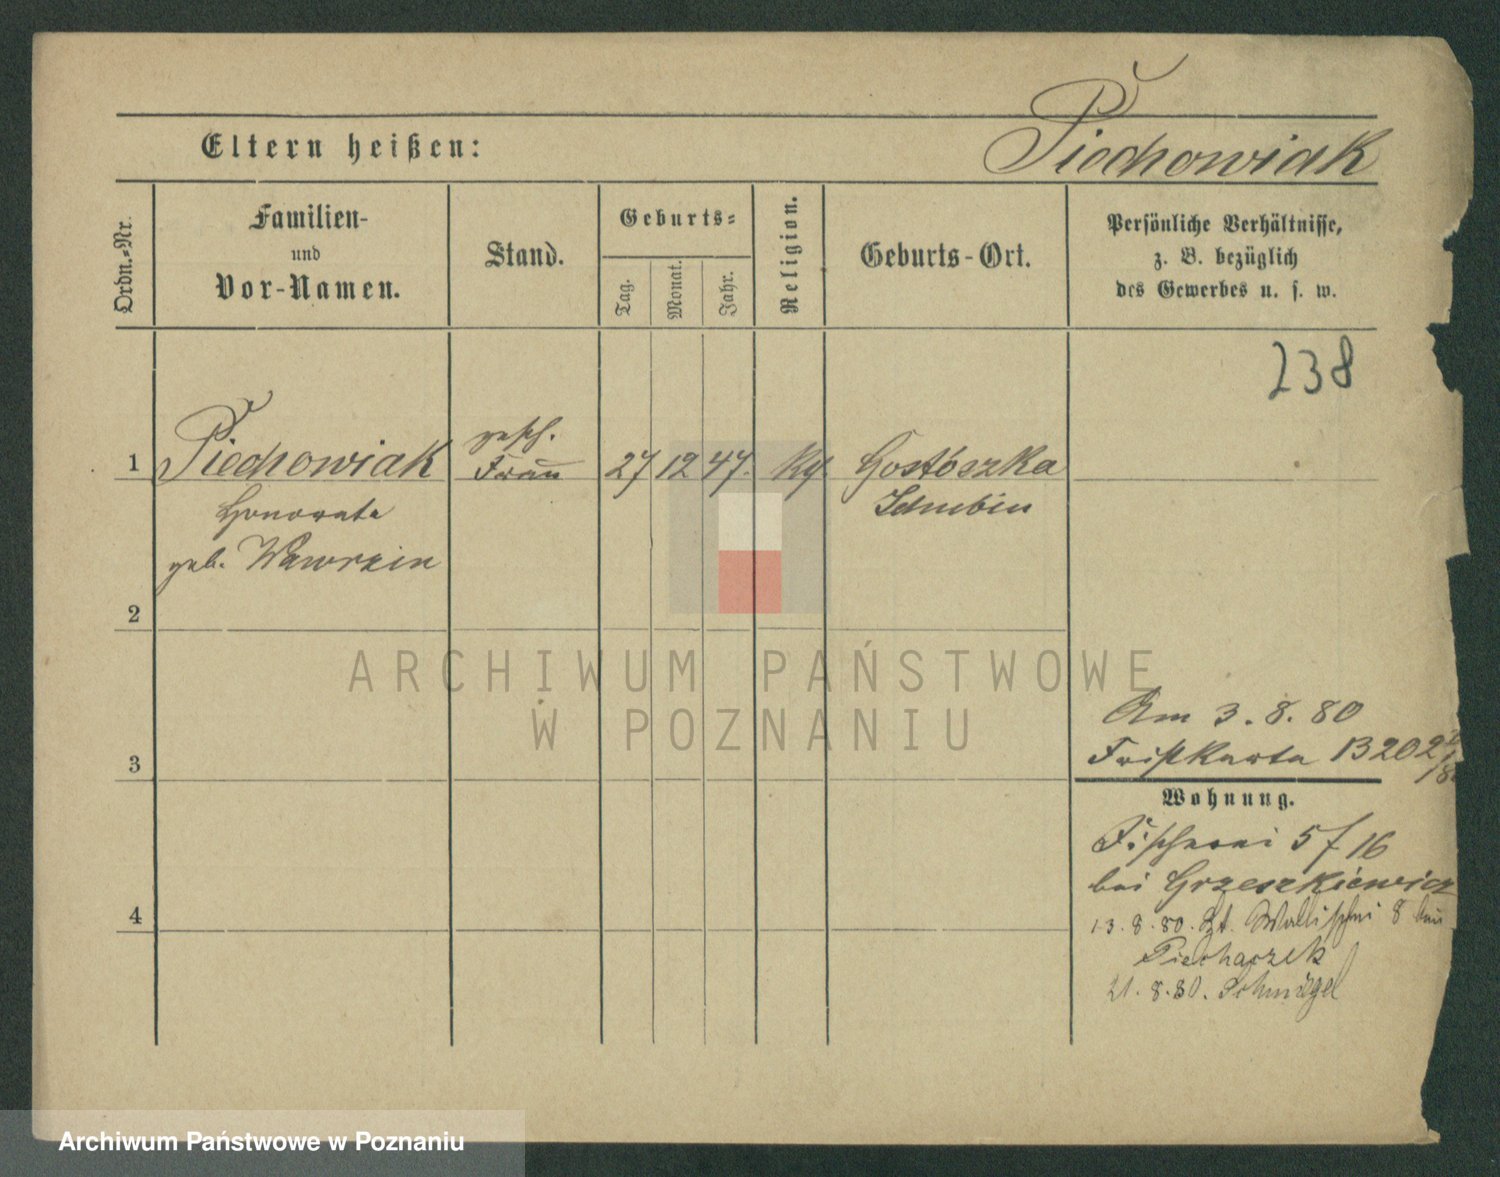 Piechowiak
Eltern heißen:
Ordn.-Nr.
Familien-
und
Vor-Namen.
Stand.
Geburts-
Tag.
Monat.
Jahr.
Religion.
Geburts-Ort.
Persönliche Verhältnisse,
z. B. bezüglich
des Gewerbes u. s. w.
238
1 Piechowiak gesch. Frau 27 12 47. Kath.
Schubin
Honorata
geb. Wawrzin
2
ARCHIWUM PAŃSTWOWE
W POZNANIU
Am 3. 8. 80
3
Wohnung.
Fischerei 5 / 16
bei Grzeszkiewicz
4
13. 8. 80. Wallischei 8 bei
Piechaczek
21. 8. 80. Schmiegel
Archiwum Państwowe w Poznaniu